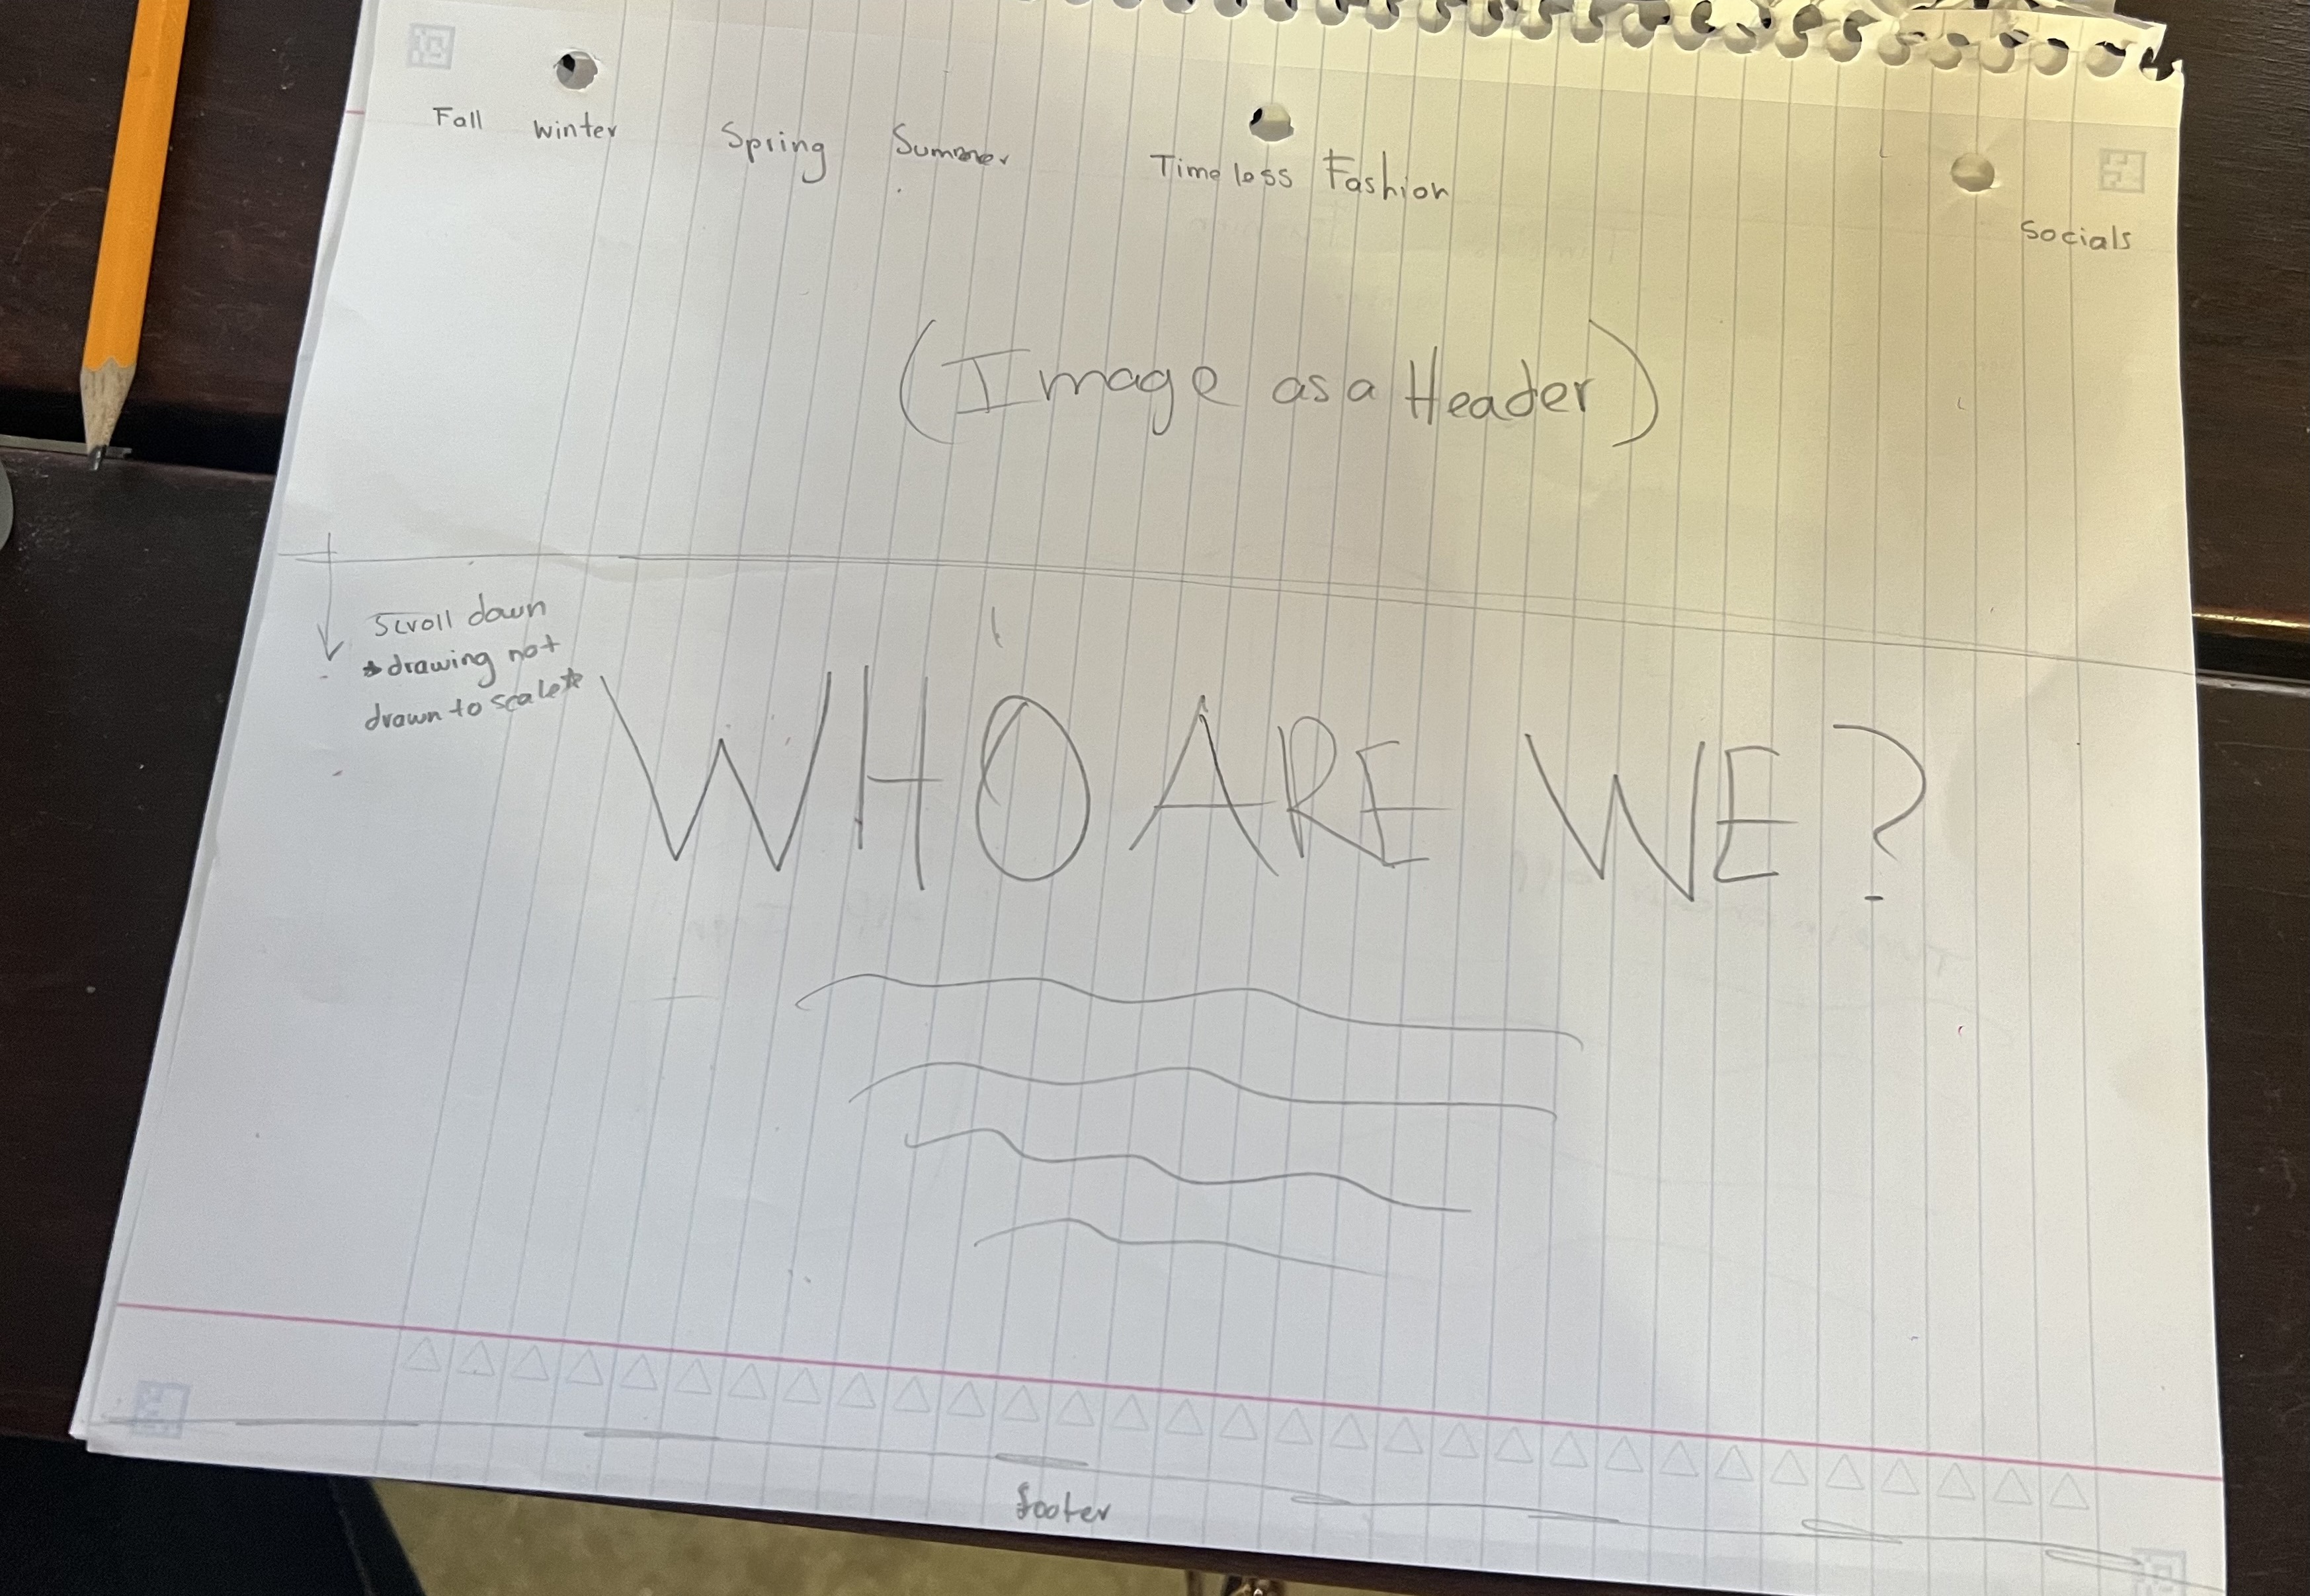 Fall winter Spring Summer Timeless Fashion
Socials
(Image as a Header)
Scroll down
*drawing not
drawn to scale*
WHO ARE WE?
footer